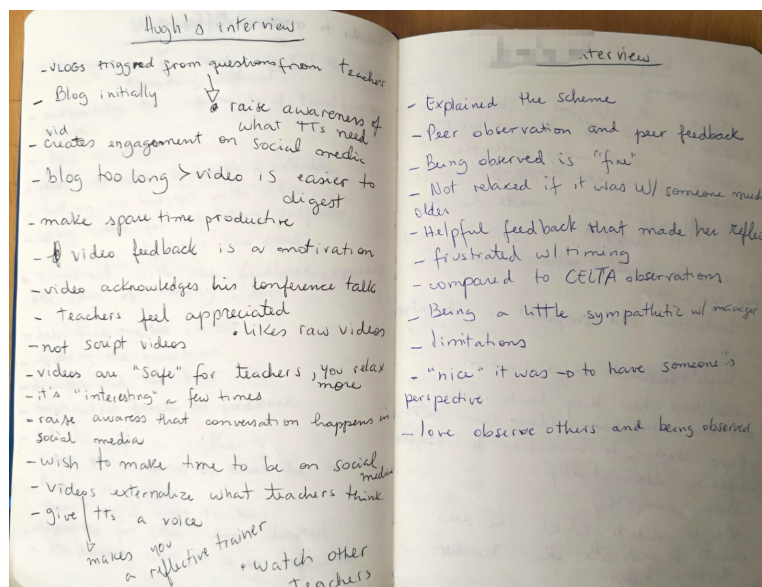 Hugh's interview
- VLOGS triggred from questions from teacher
- Blog initially
raise awareness of
what TTs need
vid
- creates engagement on social media
- blog too long > video is easier to
digest
- make spare time productive
- video feedback is a motivation
- video acknowledges his conference talk
- teachers feel appreciated
• likes raw videos
- not script videos
- videos are "safe" for teachers, you relax
more
- it's "interesting" a few times
- raise awaress that conversation happens in
social media
- wish to make time to be on social
media
- videos externalize what teachers think.
- give TTs a voice
makes you
a reflective trainer
• watch other
teachers
interview
- Explained the scheme
- Peer observation and peer feedback
- Being observed is "fine"
- Not relaxed if it was w/ someone much
older
- Helpful feedback that made her reflec
- frustrated w/ timing
- compared to CELTA observations
- Being a little sympathetic w/ manager
- limitations
- "nice" it was → to have someone's
perspective
- love observe others and being observed